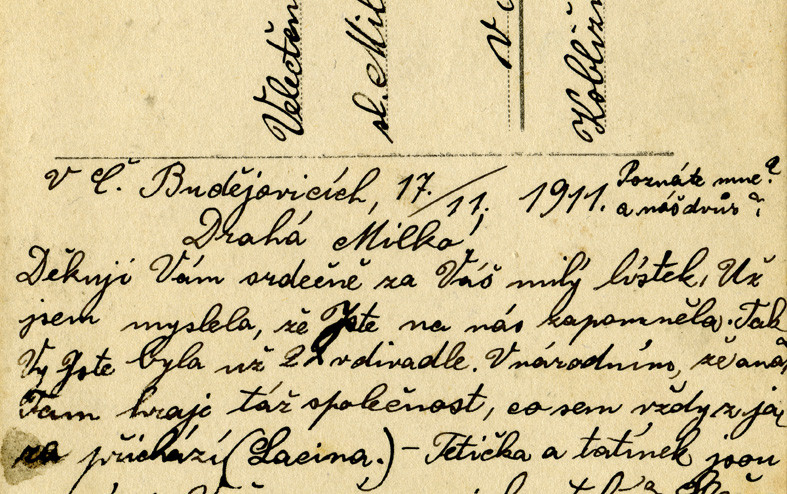 Velectěn
sl. Mil
V
Kobliž
V Č. Budějovicích, 17./11. 1911.
Poznáte mne?
a náš dvůr?
Drahá Milko!
Děkuji Vám srdečně za Váš milý lístek. Už
jsem myslela, že Jste na nás zapomněla. Tak
Vy Jste byla už 22 v divadle. V národním, že ano?
Tam hraje táž společnost, co sem vždy z ja
ra přichází (Lacina.) – Tetička a tatínek jsou